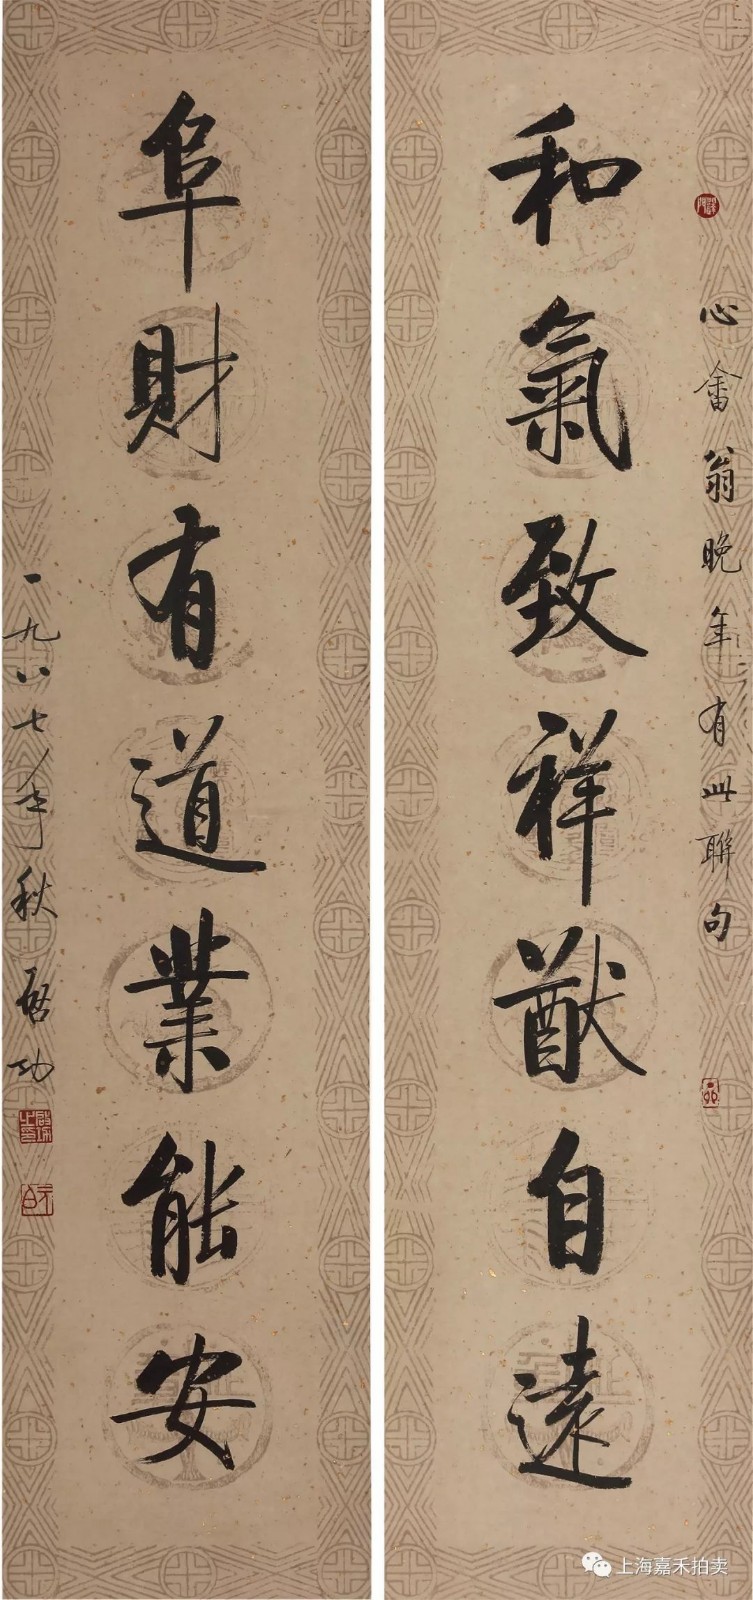 心畬翁晚年有此聯句
和氣致祥猷自遠
阜財有道業能安
一九八七年秋 启功
元白
上海嘉禾拍卖